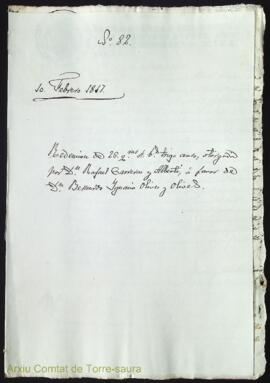 Nº 82.
10 Febrero 1847.
Redencion de 26 q.nes de b.n trigo censo, otorgada
por D.n Rafael Carreras y Alberti, á favor de
D.n Bernardo Ignacio Olives y Olives.
Arxiu Comtat de Torre-saura